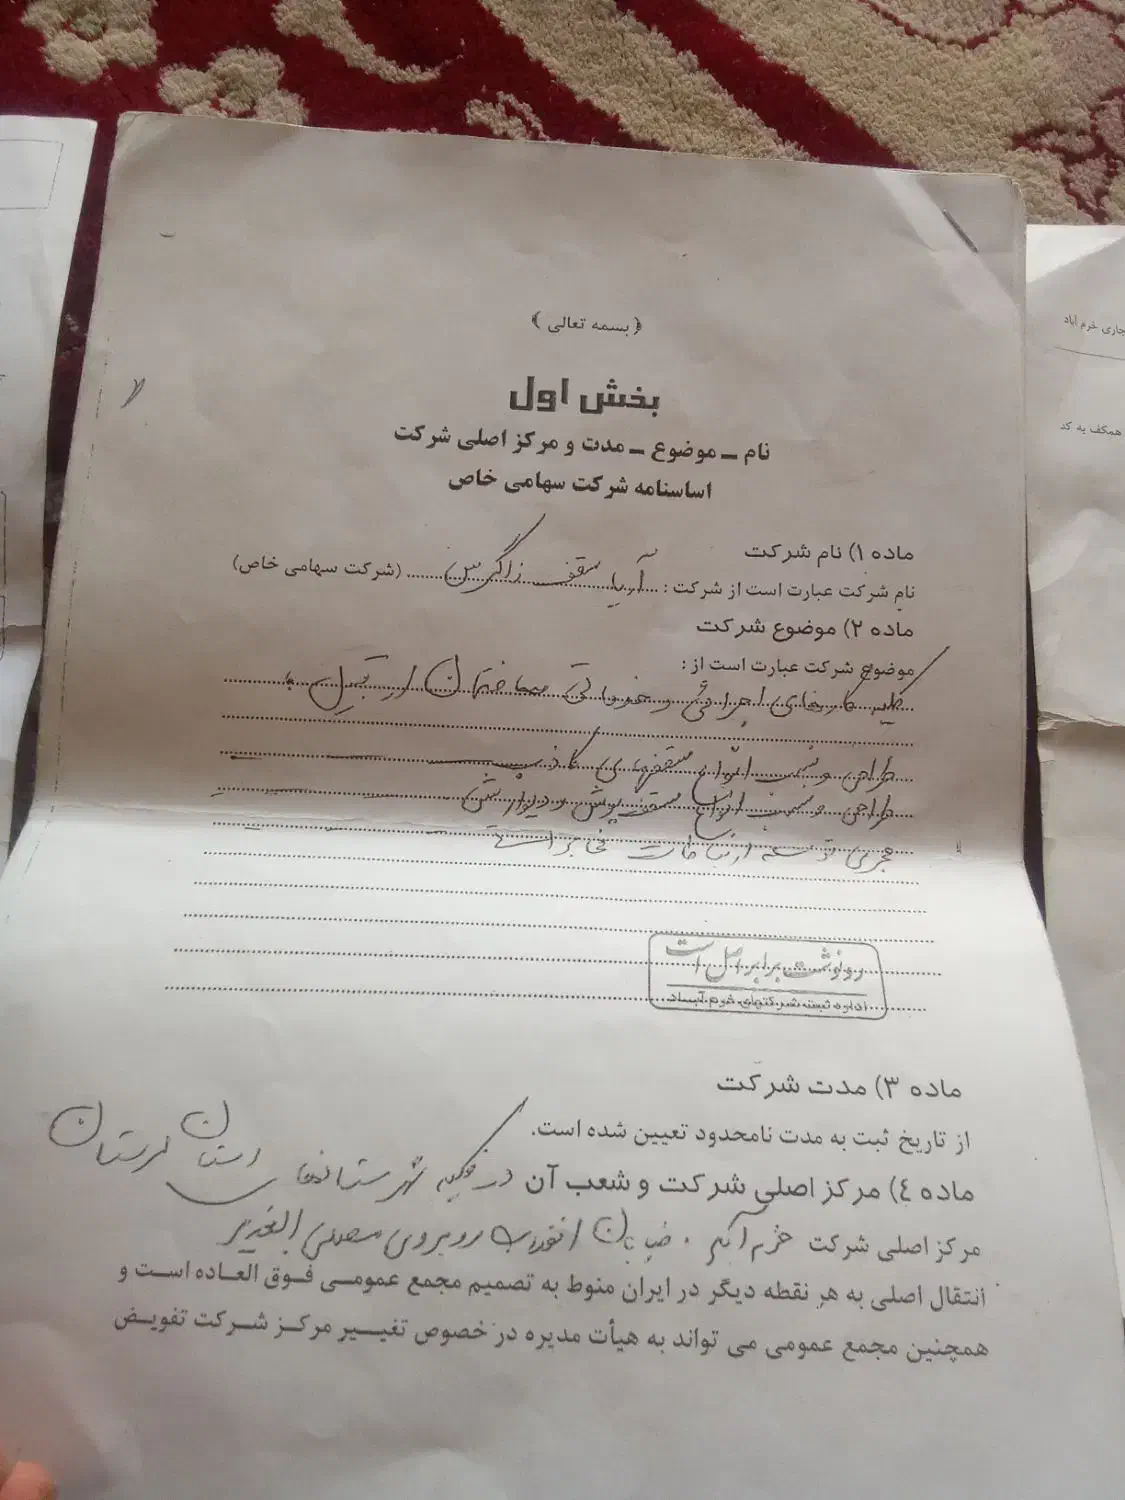 ﴿ بسمه تعالی ﴾
بخش اول
نام – موضوع – مدت و مرکز اصلی شرکت
اساسنامه شرکت سهامی خاص
ماده ۱) نام شرکت
نام شرکت عبارت است از شرکت : آریا سقف زاگرس (شرکت سهامی خاص)
ماده ۲) موضوع شرکت
موضوع شرکت عبارت است از :
کلیه کارهای اجرائی و خدماتی ساختمان از قبیل
طراحی و نصب انواع سقفهای کاذب
طراحی و نصب انواع سقف پوش و دیوارپوش
مجری توسعه ارتباطات مخابرات
رونوشت برابر اصل است
اداره ثبت شرکتهای خرم آباد
ماده ۳) مدت شرکت
از تاریخ ثبت به مدت نامحدود تعیین شده است.
ماده ۴) مرکز اصلی شرکت و شعب آن در کلیه شهرستانهای استان لرستان
مرکز اصلی شرکت خرم آباد . خیابان انقلاب روبروی مصلی الغدیر
انتقال اصلی به هر نقطه دیگر در ایران منوط به تصمیم مجمع عمومی فوق العاده است و
همچنین مجمع عمومی می تواند به هیأت مدیره در خصوص تغییر مرکز شرکت تفویض
جاری خرم آباد
همکف به کد